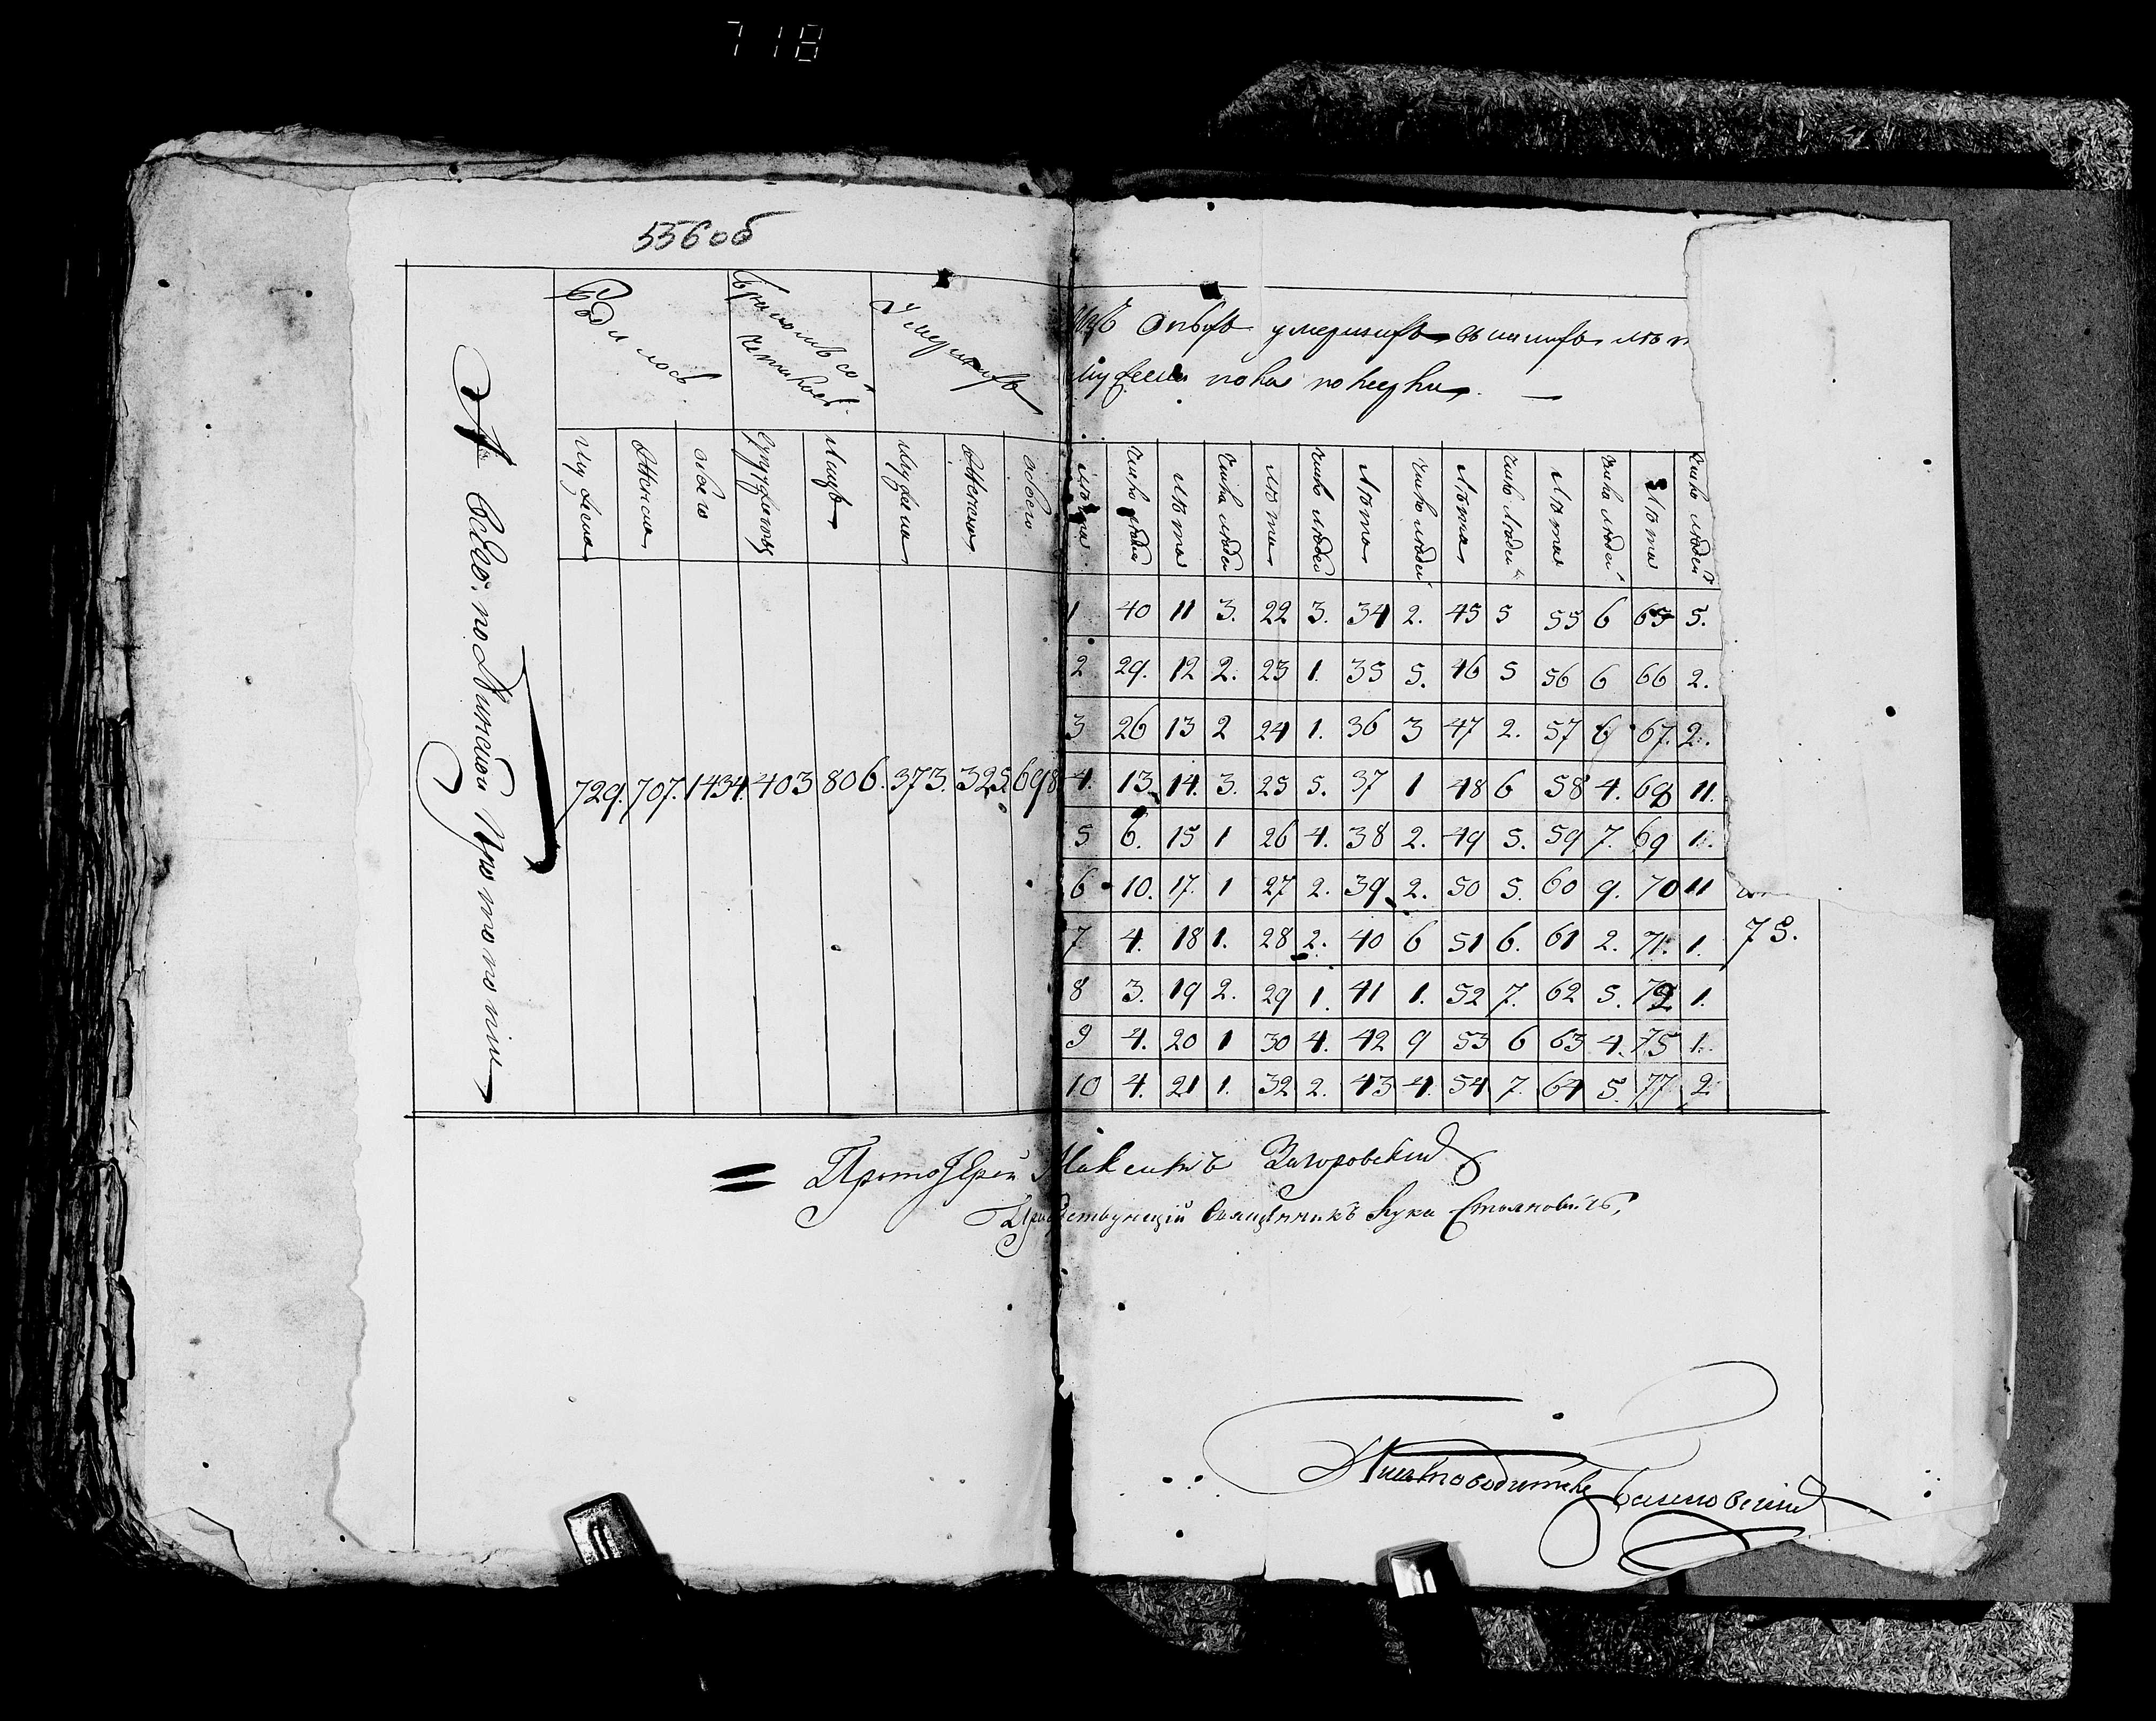 718
556об
Родилось
Бракомъ сочетавшихся
Умершихъ
Изъ оныхъ умершихъ въ какихъ лѣт
Мужеска пола
А всего: по Протопопіи
Мужеска
Женска
обоего
Супружествъ
Лицъ
Мужеска
Женска
обоего
лѣта
число людей
лѣта
число людей
лѣта
число людей
Лѣта
число людей
Лѣта
число людей
Лѣта
число людей
Лѣта
число людей
729. 707. 1434. 403 806. 373. 325. 698
1 40 11 3. 22 3. 34 2. 45 5 55 6 65 5.
2 29. 12 2. 23 1. 35 5. 46 5 56 6 66 2.
3 26 13 2 24 1. 36 3 47 2. 57 6 67. 2.
4. 13. 14. 3. 25 5. 37 1 48 6 58 4. 68 11.
5 6. 15 1 26 4. 38 2. 49 5. 59 7. 69 1.
6 10. 17. 1 27 2. 39 2. 50 5. 60 9. 70 11
7 4. 18 1. 28 2. 40 6 51 6. 61 2. 71. 1. 75.
8 3. 19 2. 29 1. 41 1. 52 7. 62 5. 72 1.
9 4. 20 1 30 4. 42 9 53 6 63 4. 75 1.
10 4. 21 1. 32 2. 43 4. 54 7. 64 5. 77 2
ПротоІерей Максимъ Загоровский
Присутствующій Священникъ Лука Стояновичъ
Писмоводитель